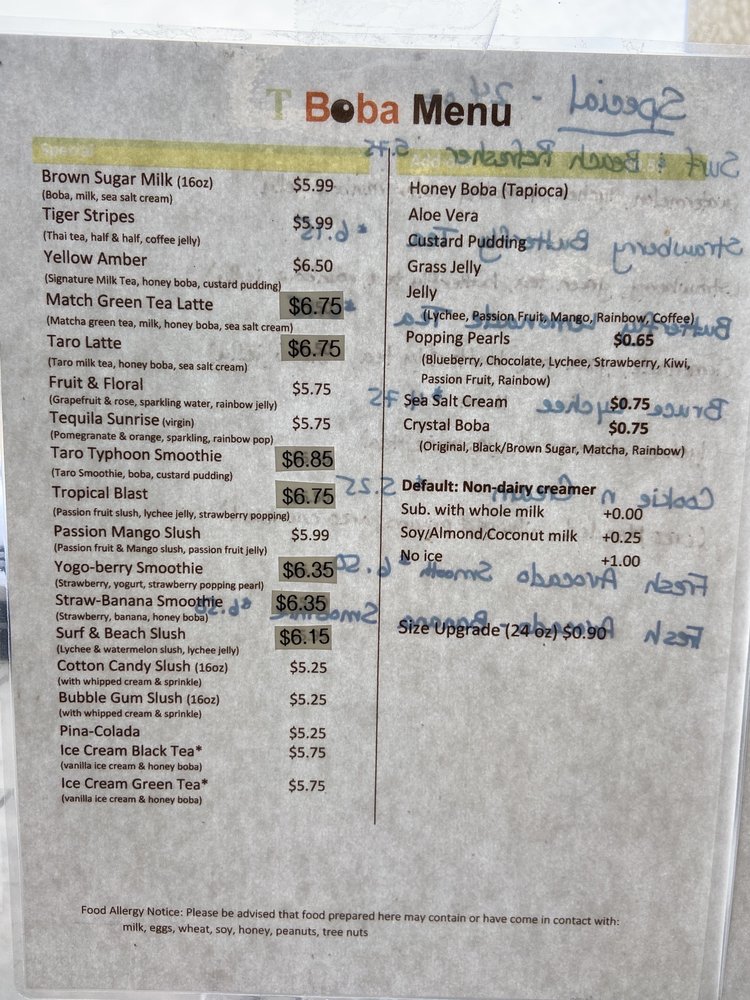 T Boba Menu
Special
Brown Sugar Milk (16oz) $5.99
(Boba, milk, sea salt cream)
Tiger Stripes $5.99
(Thai tea, half & half, coffee jelly)
Yellow Amber $6.50
(Signature Milk Tea, honey boba, custard pudding)
Match Green Tea Latte $6.75
(Matcha green tea, milk, honey boba, sea salt cream)
Taro Latte $6.75
(Taro milk tea, honey boba, sea salt cream)
Fruit & Floral $5.75
(Grapefruit & rose, sparkling water, rainbow jelly)
Tequila Sunrise (virgin) $5.75
(Pomegranate & orange, sparkling, rainbow pop)
Taro Typhoon Smoothie $6.85
(Taro Smoothie, boba, custard pudding)
Tropical Blast $6.75
(Passion fruit slush, lychee jelly, strawberry popping)
Passion Mango Slush $5.99
(Passion fruit & Mango slush, passion fruit jelly)
Yogo-berry Smoothie $6.35
(Strawberry, yogurt, strawberry popping pearl)
Straw-Banana Smoothie $6.35
(Strawberry, banana, honey boba)
Surf & Beach Slush $6.15
(Lychee & watermelon slush, lychee jelly)
Cotton Candy Slush (16oz) $5.25
(with whipped cream & sprinkle)
Bubble Gum Slush (16oz) $5.25
(with whipped cream & sprinkle)
Pina-Colada $5.25
Ice Cream Black Tea* $5.75
(vanilla ice cream & honey boba)
Ice Cream Green Tea* $5.75
(vanilla ice cream & honey boba)
Honey Boba (Tapioca)
Aloe Vera
Custard Pudding
Grass Jelly
Jelly
(Lychee, Passion Fruit, Mango, Rainbow, Coffee)
Popping Pearls $0.65
(Blueberry, Chocolate, Lychee, Strawberry, Kiwi,
Passion Fruit, Rainbow)
Sea Salt Cream $0.75
Crystal Boba $0.75
(Original, Black/Brown Sugar, Matcha, Rainbow)
Default: Non-dairy creamer
Sub. with whole milk +0.00
Soy/Almond/Coconut milk +0.25
No ice +1.00
Size Upgrade (24 oz) $0.90
Special - 24
Surf & Beach Refresher 5.75
Strawberry Butterfly
Butterfly Lemonade Tea
Bruce Lychee
Cookie n Cream 5.25
Fresh Avocado Smooth 6.50
Fresh Avocado - Banana Smoothie
Food Allergy Notice: Please be advised that food prepared here may contain or have come in contact with:
milk, eggs, wheat, soy, honey, peanuts, tree nuts